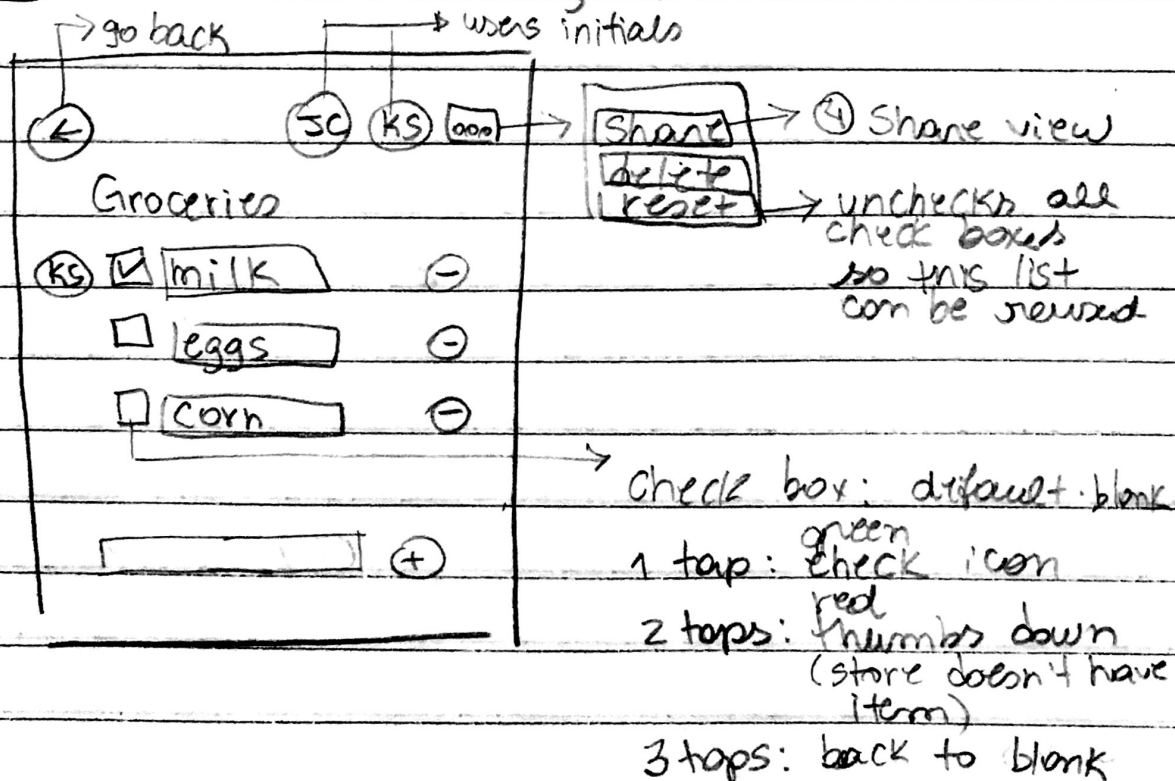 go back
users initials
JC KS
Share
④ Share view
delete
Groceries
reset
unchecks all
check boxes
so this list
can be reused
KS milk
eggs
corn
check box: default blank
green
1 tap: check icon
red
2 taps: thumbs down
(store doesn't have
item)
3 taps: back to blank